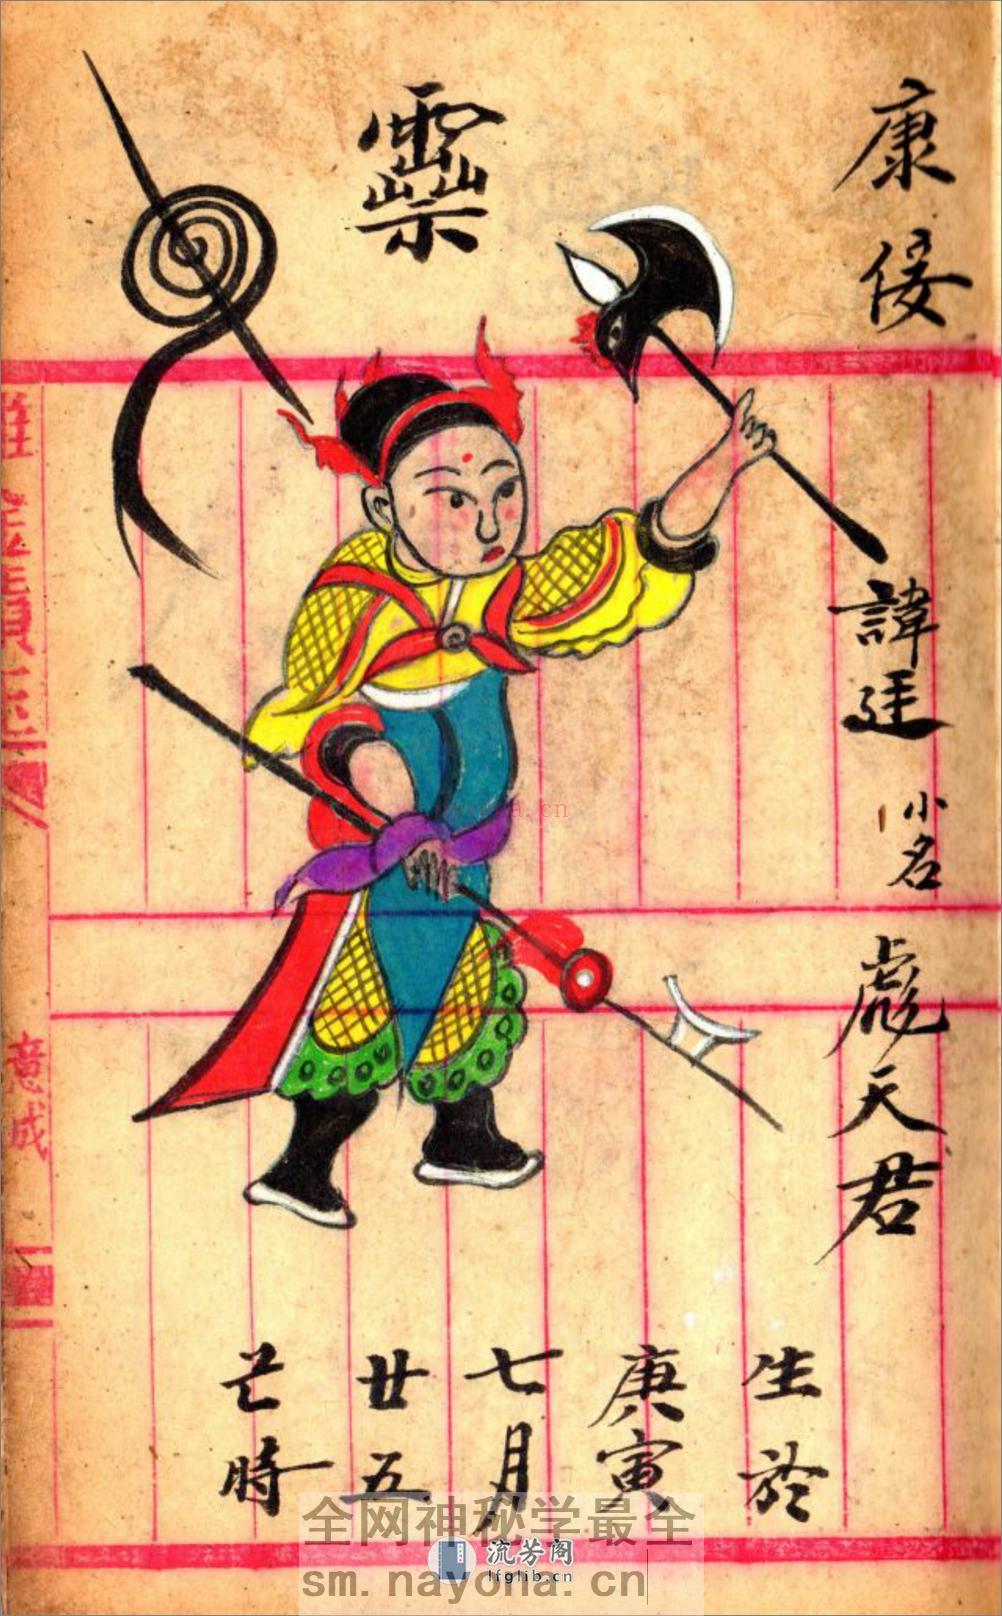 康
諱廷
小名
彪天君
生於
庚寅
七月
廿五
時
意成
nayona.cn
全网神秘学最全
流芳阁
lfglib.cn
sm.nayona.cn